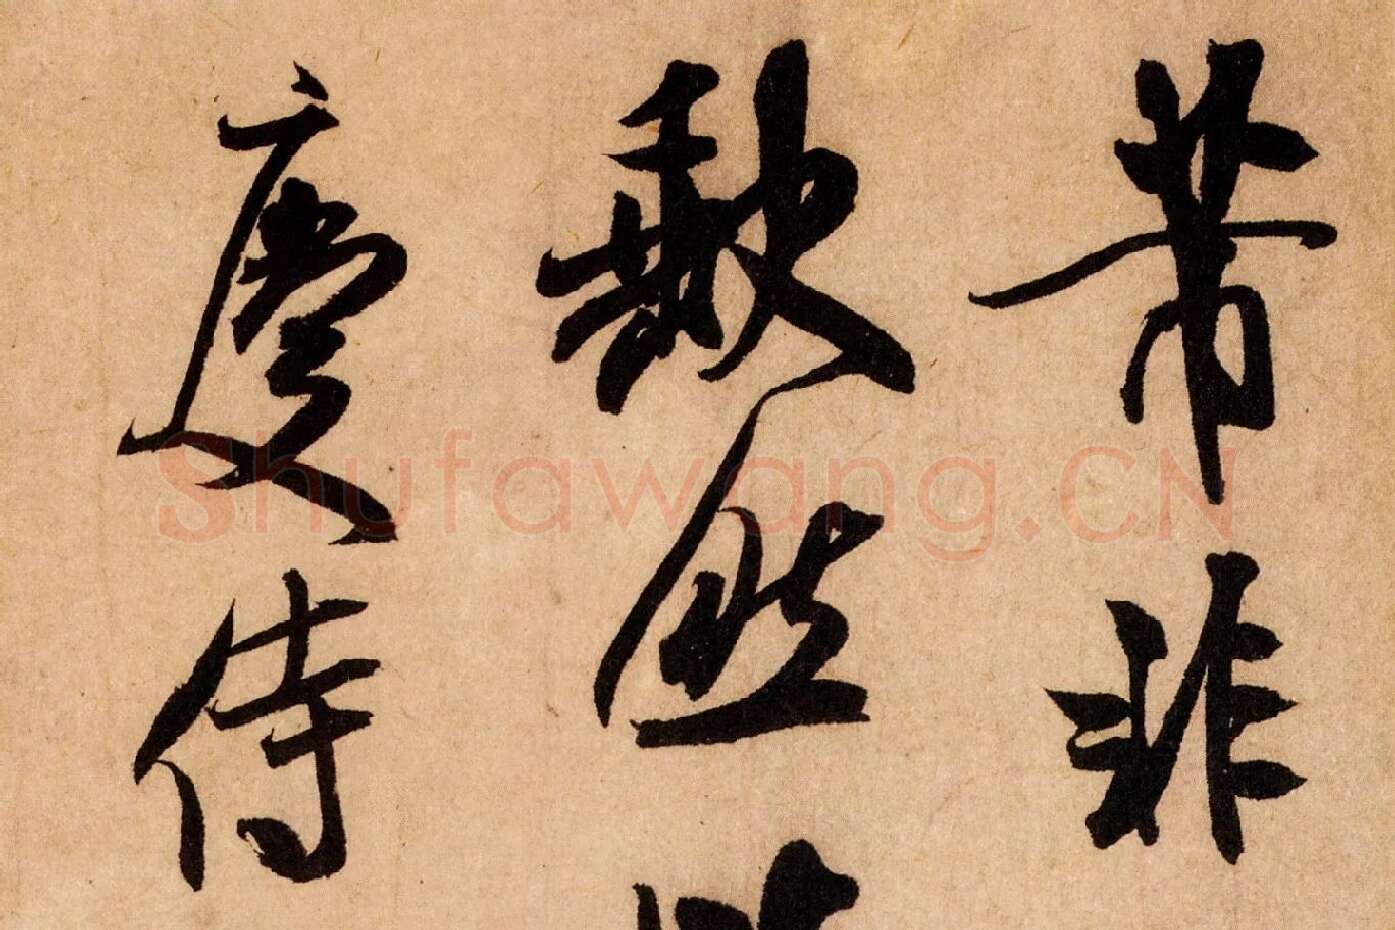 芾非
然
慶侍
Shufawang.CN